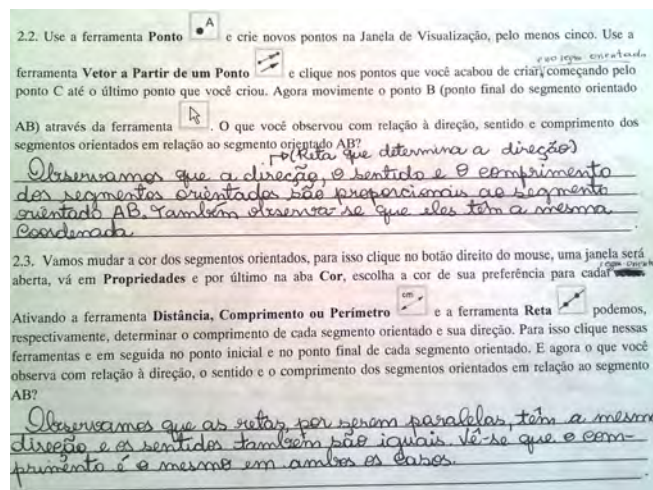 2.2. Use a ferramenta Ponto A e crie novos pontos na Janela de Visualização, pelo menos cinco. Use a
ferramenta Vetor a Partir de um Ponto e clique nos pontos que você acabou de criar, começando pelo
ponto C até o último ponto que você criou. Agora movimente o ponto B (ponto final do segmento orientado
AB) através da ferramenta . O que você observou com relação à direção, sentido e comprimento dos
segmentos orientados em relação ao segmento orientado AB?
(Reta que determina a direção)
Observamos que a direção, o sentido e o comprimento
dos segmentos orientados são proporcionais ao segmento
orientado AB. Também observa-se que eles têm a mesma
Coordenada.
2.3. Vamos mudar a cor dos segmentos orientados, para isso clique no botão direito do mouse, uma janela será
aberta, vá em Propriedades e por último na aba Cor, escolha a cor de sua preferência para cada
Ativando a ferramenta Distância, Comprimento ou Perímetro cm e a ferramenta Reta podemos,
respectivamente, determinar o comprimento de cada segmento orientado e sua direção. Para isso clique nessas
ferramentas e em seguida no ponto inicial e no ponto final de cada segmento orientado. E agora o que você
observa com relação à direção, o sentido e o comprimento dos segmentos orientados em relação ao segmento
AB?
Observamos que as retas, por serem paralelas, têm a mesm
direção e os sentidos também são iguais. Vê-se que o com-
primento é o mesmo em ambos os casos.